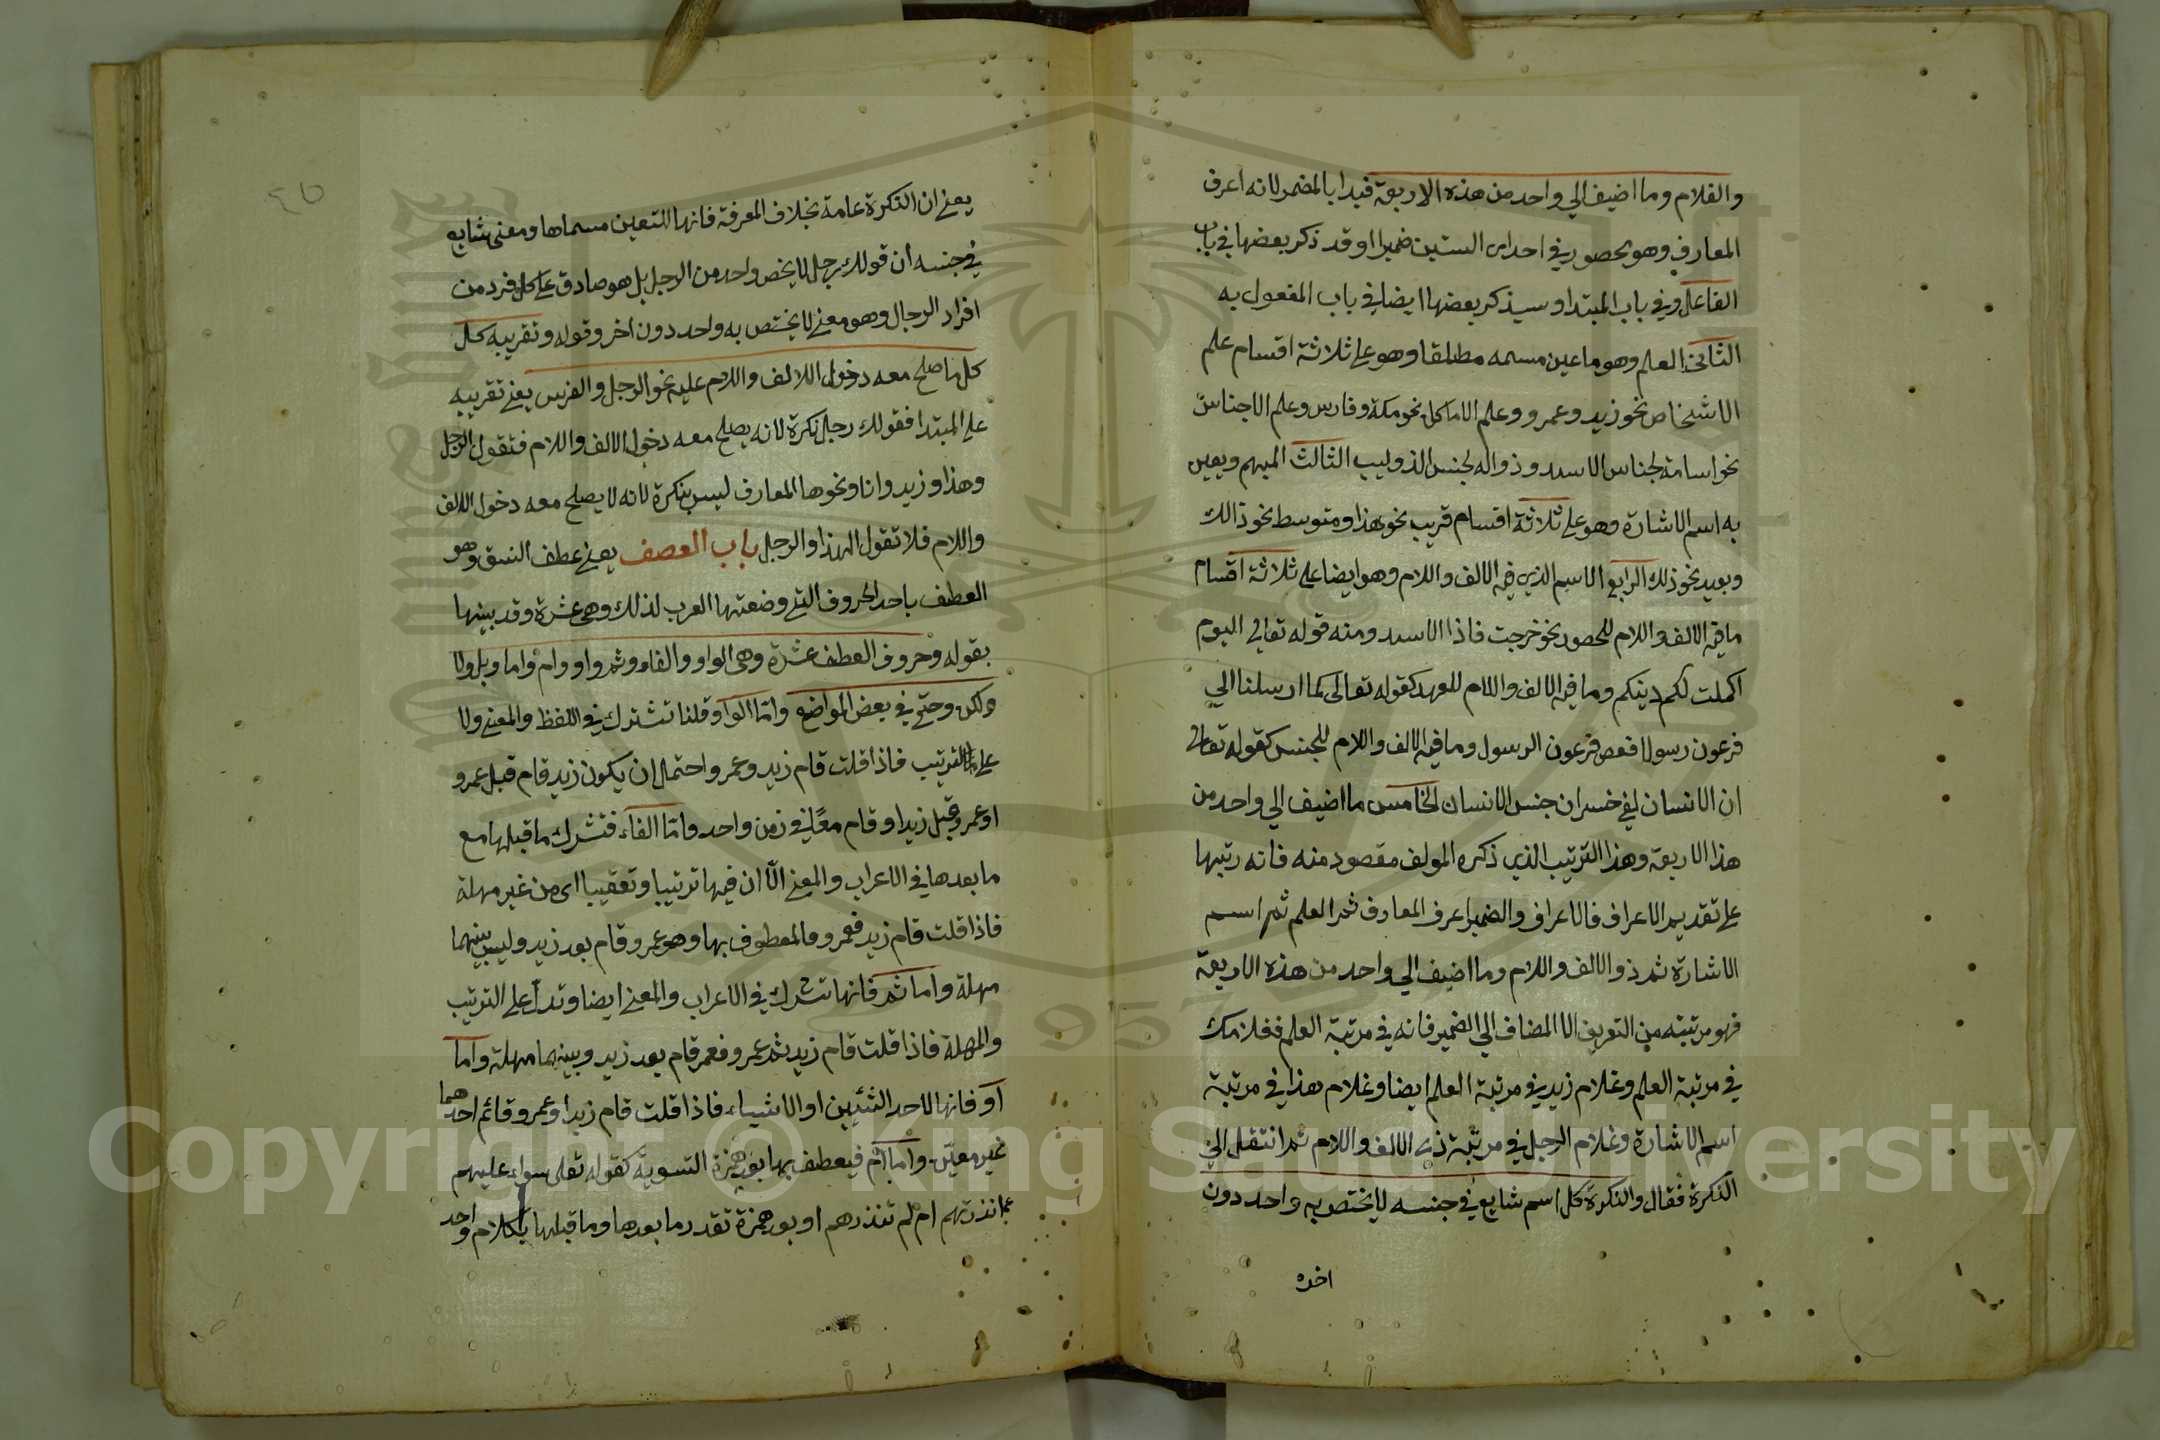 والغلام وما اضيف الي واحد من هذه الاربعة فبدا بالمضمر لانه اعرف
المعارف وهو محصور في احدى الستين ضميرا وقد ذكر بعضها في باب
الفاعل وفي باب المبتدا وسيذكر بعضها ايضا في باب المفعول به
الثاني العلم وهو ما عين مسمه مطلقا وهو على ثلاثة اقسام علم
الاشخاص نحو زيد وعمرو وعلم الاماكن نحو مكة وفارس وعلم الاجناس
نحو اسامة لجناس الاسد وذواله لجنس الذويب الثالث المبهم ويعين
به اسم الاشارة وهو على ثلاثة اقسام قريب نحو هذا ومتوسط نحو ذالك
وبعيد نحو ذلك الرابع الاسم الذي فيه الالف واللام وهو ايضا على ثلاثة اقسام
ما فيه الالف واللام للحصور نحو خرجت فاذا الاسد ومنه قوله تعالى اليوم
اكملت لكم دينكم وما فيه الالف واللام للعهد كقوله تعالى كما ارسلنا الي
فرعون رسولا فعص فرعون الرسول وما فيه الالف واللام للجنس كقوله تعالى
ان الانسان لفي خسر ان جنس الانسان الخامس ما اضيف الي واحد من
هذا الاربعة وهذا الترتيب الذي ذكره المولف مقصود منه فانه رتبها
على تقديم الاعراف فالاعراف والضمير اعرف المعارف ثم العلم ثم اسم
الاشارة ثم ذو الالف واللام وما اضيف الي واحد من هذه الاربعة
فهو مرتبته من التعريف الا المضاف الي الضمير فانه في مرتبة العلم فغلامك
في مرتبة العلم وغلام زيد في مرتبة العلم ايضا وغلام هذا في مرتبة
اسم الاشارة وغلام الرجل في مرتبة ذي الالف واللام ثم انتقل الي
النكرة فقال والنكرة كل اسم شايع في جنسه لا يختص به واحد دون
اخره
٤٥
يعني ان النكرة عامة بخلاف المعرفة فانها لتعين مسماها ومعنى شايع
في جنسه أن قولك رجل لا يخص واحد من الرجل بل هو صادق على كل فرد من
افراد الرجال وهو معنى لا يختص به واحد دون اخر وقوله وتقريبه كل
كل ما صلح معه دخول الالف واللام عليه نحو الرجل والفرس يعني تقريبه
على المبتدا فقولك رجل نكرة لانه يصلح معه دخول الالف واللام فتقول الرجل
وهذا وزيد وانا ونحوها المعارف ليس بنكرة لانه لا يصلح معه دخول الالف
واللام فلا تقول الهذا والرجل باب العصف يعني عطف النسق وهو
العطف باحد الحروف التي وضعتها العرب لذلك وهى عشرة وقد بينها
بقوله وحروف العطف عشرة وهى الواو والفاء وثم واو وام واما وبل ولا
ولكن وحتى في بعض المواضع واما الواو قلنا تشترك في اللفظ والمعنى ولا
على الترتيب فاذا قلت قام زيد وعمرو احتمل ان يكون زيد قام قبل عمرو
او عمرو قبل زيد او قام معًا في زمن واحد واما الفاء فتشرك ما قبلها مع
ما بعدها في الاعراب والمعنى الا ان فيها ترتيبا وتعقيبا اى من غير مهلة
فاذا قلت قام زيد فعمرو فالمعطوف بها وهو عمرو قام بعد زيد وليس بينهما
مهلة واما ثم فانها تشرك في الاعراب والمعنى ايضا وتدل على الترتيب
والمهلة فاذا قلت قام زيد ثم عمرو فعمر قام بعد زيد وبينهما مهلة واما
أو فانها لاحد الشيئين او الاشياء فاذا قلت قام زيد او عمرو قائم احدهما
غير معين واما أم فيعطف بها بعد همزة التسوية كقوله تعلى سواء عليهم
ءانذرتهم ام لم تنذرهم او بعد همزة تقدر ما بعدها وما قبلها بكلام واحد
Copyright © King Saud University
1957